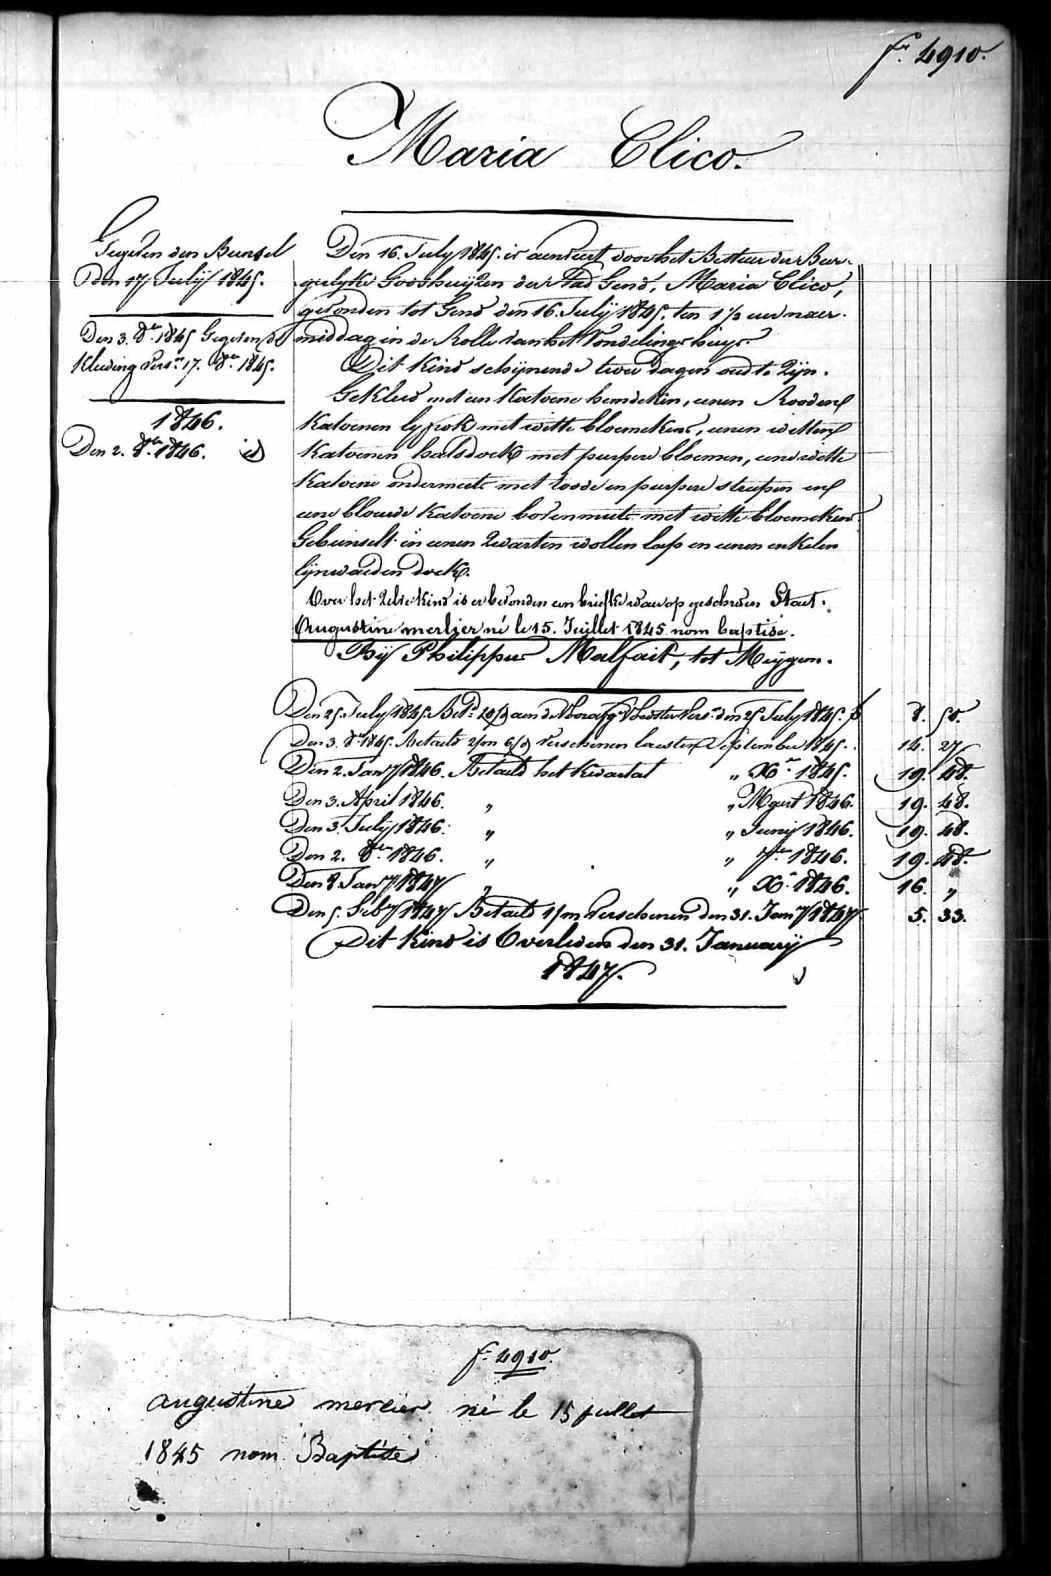 f.º 4910.
Maria Clico.
Gegeven den Bunsel
den 17 Julij 1845.
Den 3. 8.bre 1845 Gegeven de
Kleeding vers.n 17. 8.bre 1845.
1846.
Den 2. 8.bre 1846. id
Den 16. July 1845. is aenveert door het Bestuer der Bur-
gelyke Godshuijzen der Stad Gend, Maria Clico,
gevonden tot Gend den 16. Julij 1845, ten 1 1/2 uer naer-
middag in de Rolle van het Vondelinge huijs
Dit Kind schijnende twee dagen oud te Zijn.
Gekleed met een Katoene hemdeken, eenen Rooden
Katoenen lyfrok met witte bloemekens, eenen witten
Katoenen halsdoek met purpere bloemen, eene witte
Katoene ondermuts met roode en purpere streepen en
eene blauwe Katoene bovenmuts met witte bloemekens
Gebunselt in eenen Zwarten wollen lap en eenen enkelen
lijnwaeden doek.
Over het Zelve Kind is er bevonden een briefke waer op geschreven Staet:
Augustine merlier né le 15. Juillet 1845 nom baptise.
Bij Philippus Malfait, tot Meygem.
Den 25. July 1845. Bet.d 10/d aen de Voorzg.e Voedster vers.n den 25 July 1845. 8. 50.
Den 3. 8.bre 1845. Betaeld 2/m 6/d verschenen laesten September 1845. 14. 27
Den 2. Jan.y 1846. Betaeld het Kwartael „ X.bre 1845. 19. 48.
Den 3. April 1846. „ „ Maert 1846. 19. 48.
Den 3. Julij 1846. „ „ Junij 1846. 19. 48.
Den 2. 8.bre 1846. „ „ 7.bre 1846. 19. 48.
Den 8 Jan.y 1847 „ „ X.bre 1846. 16. „
Den 5. Feb.y 1847 Betaeld 1/m verschenen den 31. Jan.y 1847 5. 33.
Dit Kind is Overleden den 31. Januarij
1847.
f.º 4910.
augustine mercier né le 15 jullet
1845 nom Baptise